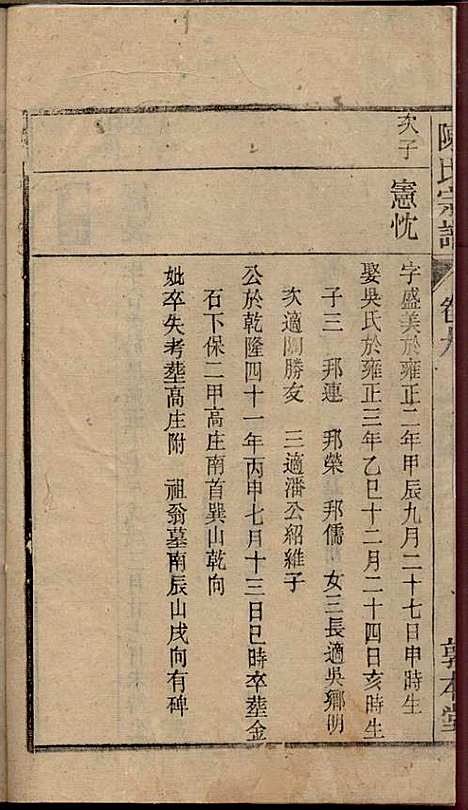 陳氏宗譜 卷九 敦本堂
次子 憲忱
字盛美於雍正二年甲辰九月二十七日申時生
娶吳氏於雍正三年乙巳十二月二十四日亥時生
子三 邦連 邦榮 邦儒 女三長適吳鄉明
次適闞勝友 三適潘公紹維子
公於乾隆四十一年丙申七月十三日巳時卒塟金
石下保二甲高庄南首巽山乾向
妣卒失考塟高庄附 祖翁墓南辰山戌向有碑